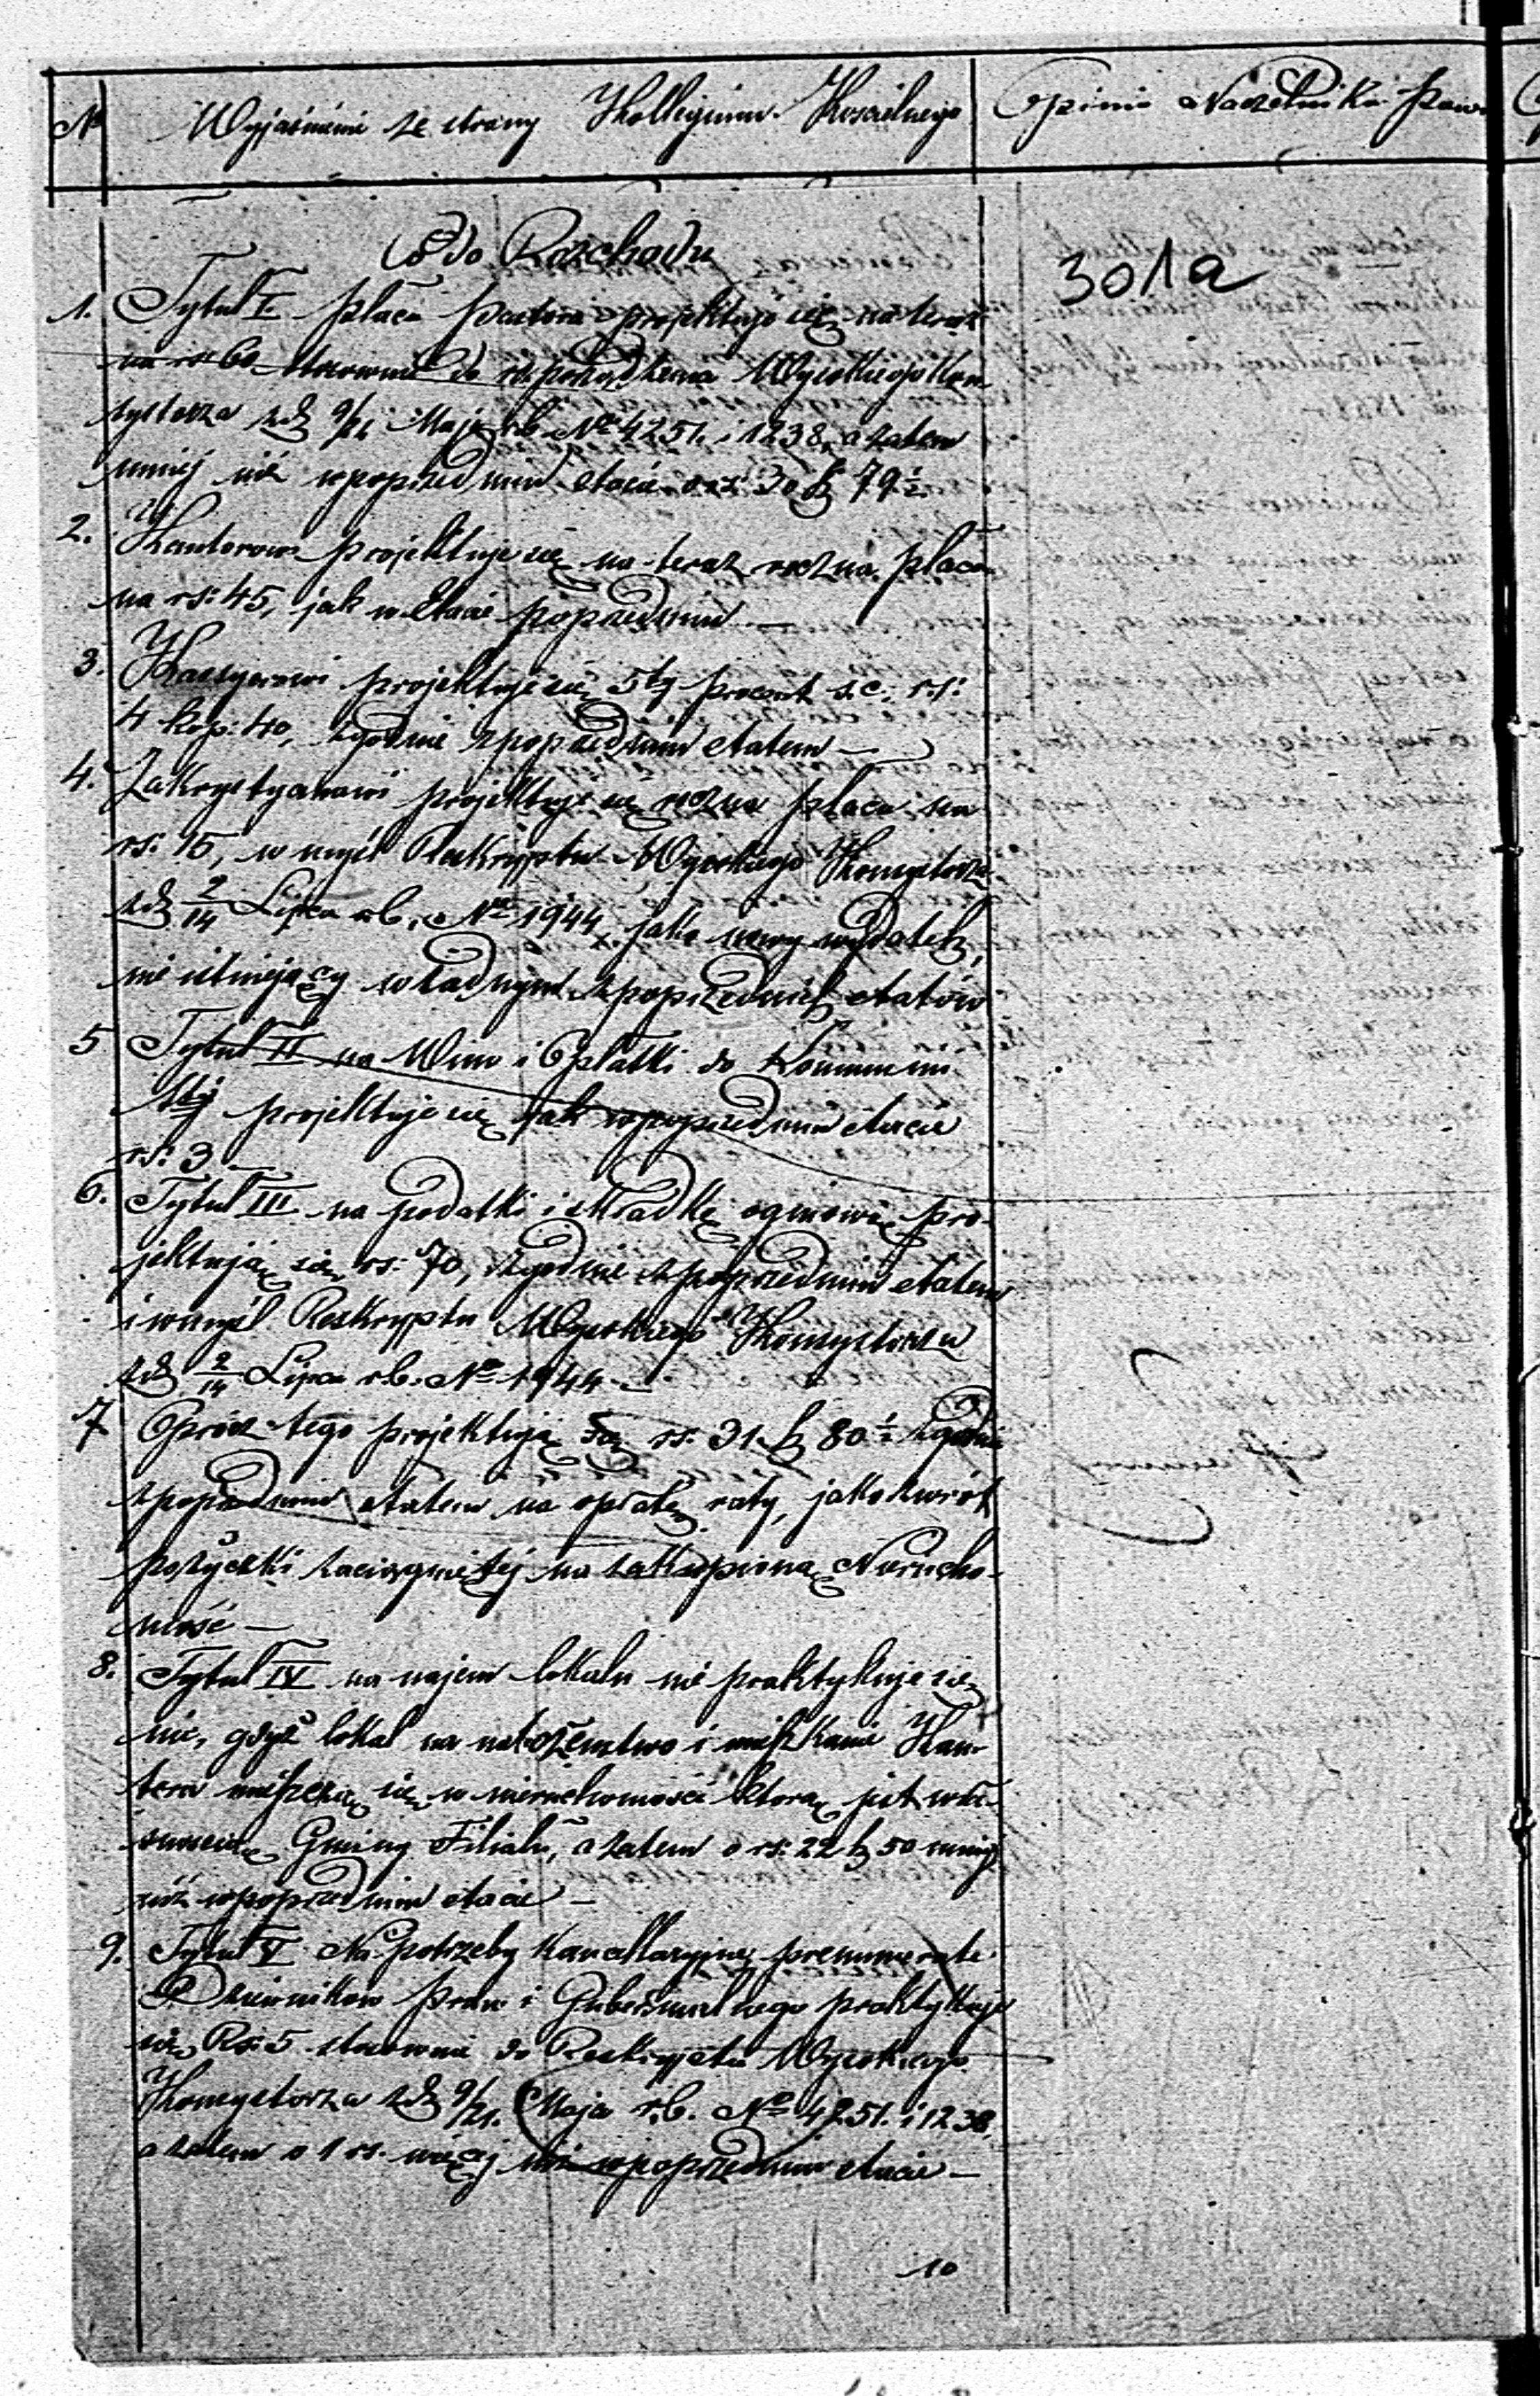 No Wyjaśnienie ze strony Kollegium Kościelnego Opinia Naczelnika Pow
Co do Rozchodu
301a
1. Tytuł I. płaca pastora projektuje się na teraz
na rs 60 stosownie do rozporządzenia Wysokiego Kon
systorza z d. 9/21 Maja r.b. No 4251. i 1238, a zatem
mniej niż w poprzednim etacie o rs: 30 k 79 ½
2. Kantorowi projektuje się na teraz roczna płaca
na rs: 45, jak w etacie poprzednim —
3. Kassyerowi projektuje się 5ty procent s.c. rs:
4 kop: 40, zgodnie z poprzednim etatem —
4. Zakrystyanowi projektuje się roczna płaca na
rs: 15, w myśl Reskryptu Wysokiego Konsystorza
z d. 2/14 Lipca r.b. No 1944, jako nowy wydatek,
nie istniejący w żadnym z poprzednich etatów
5 Tytuł II na Wino i Opłatki do Kommuni
Stej projektuje się jak w poprzednim etacie
rs: 3 —
6. Tytuł III na podatki i składkę ogniową pro-
jektują się rs: 70, zgodnie z poprzednim etatem
i w myśl Reskryptu Wysokiego Konsystorza
z d. 2/14 Lipca r.b. No 1944 —
7 Oprócz tego projektują się rs. 31 k 80 ½ zgodnie
z poprzednim etatem na opłatę raty, jako zwrót
pożyczki zaciągniętej na zakupioną Nierucho-
mość —
8. Tytuł IV na najem lokalu nie praktykuje się
nic, gdyż lokal na nabożeństwo i mieszkanie Kan-
tora mieszczą się w nieruchomości która jest wła-
snością Gminy Filialu, a zatem o rs: 22 k 50 mniej
niż w poprzednim etacie —
9. Tytuł V Na potrzeby Kancellaryjne, prenumerate
Dzienników praw i Gubernialnego praktykuje
się Rs: 5 stosownie do Reskryptu Wysokiego
Konsystorza z d. 9/21. Maja r.b. No 4251. i 1238
a zatem o 1 rs. więcej niż w poprzednim etacie —
10